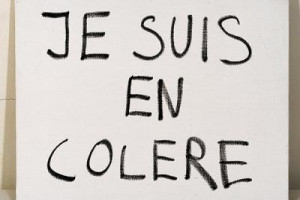 JE SUIS
EN
COLERE